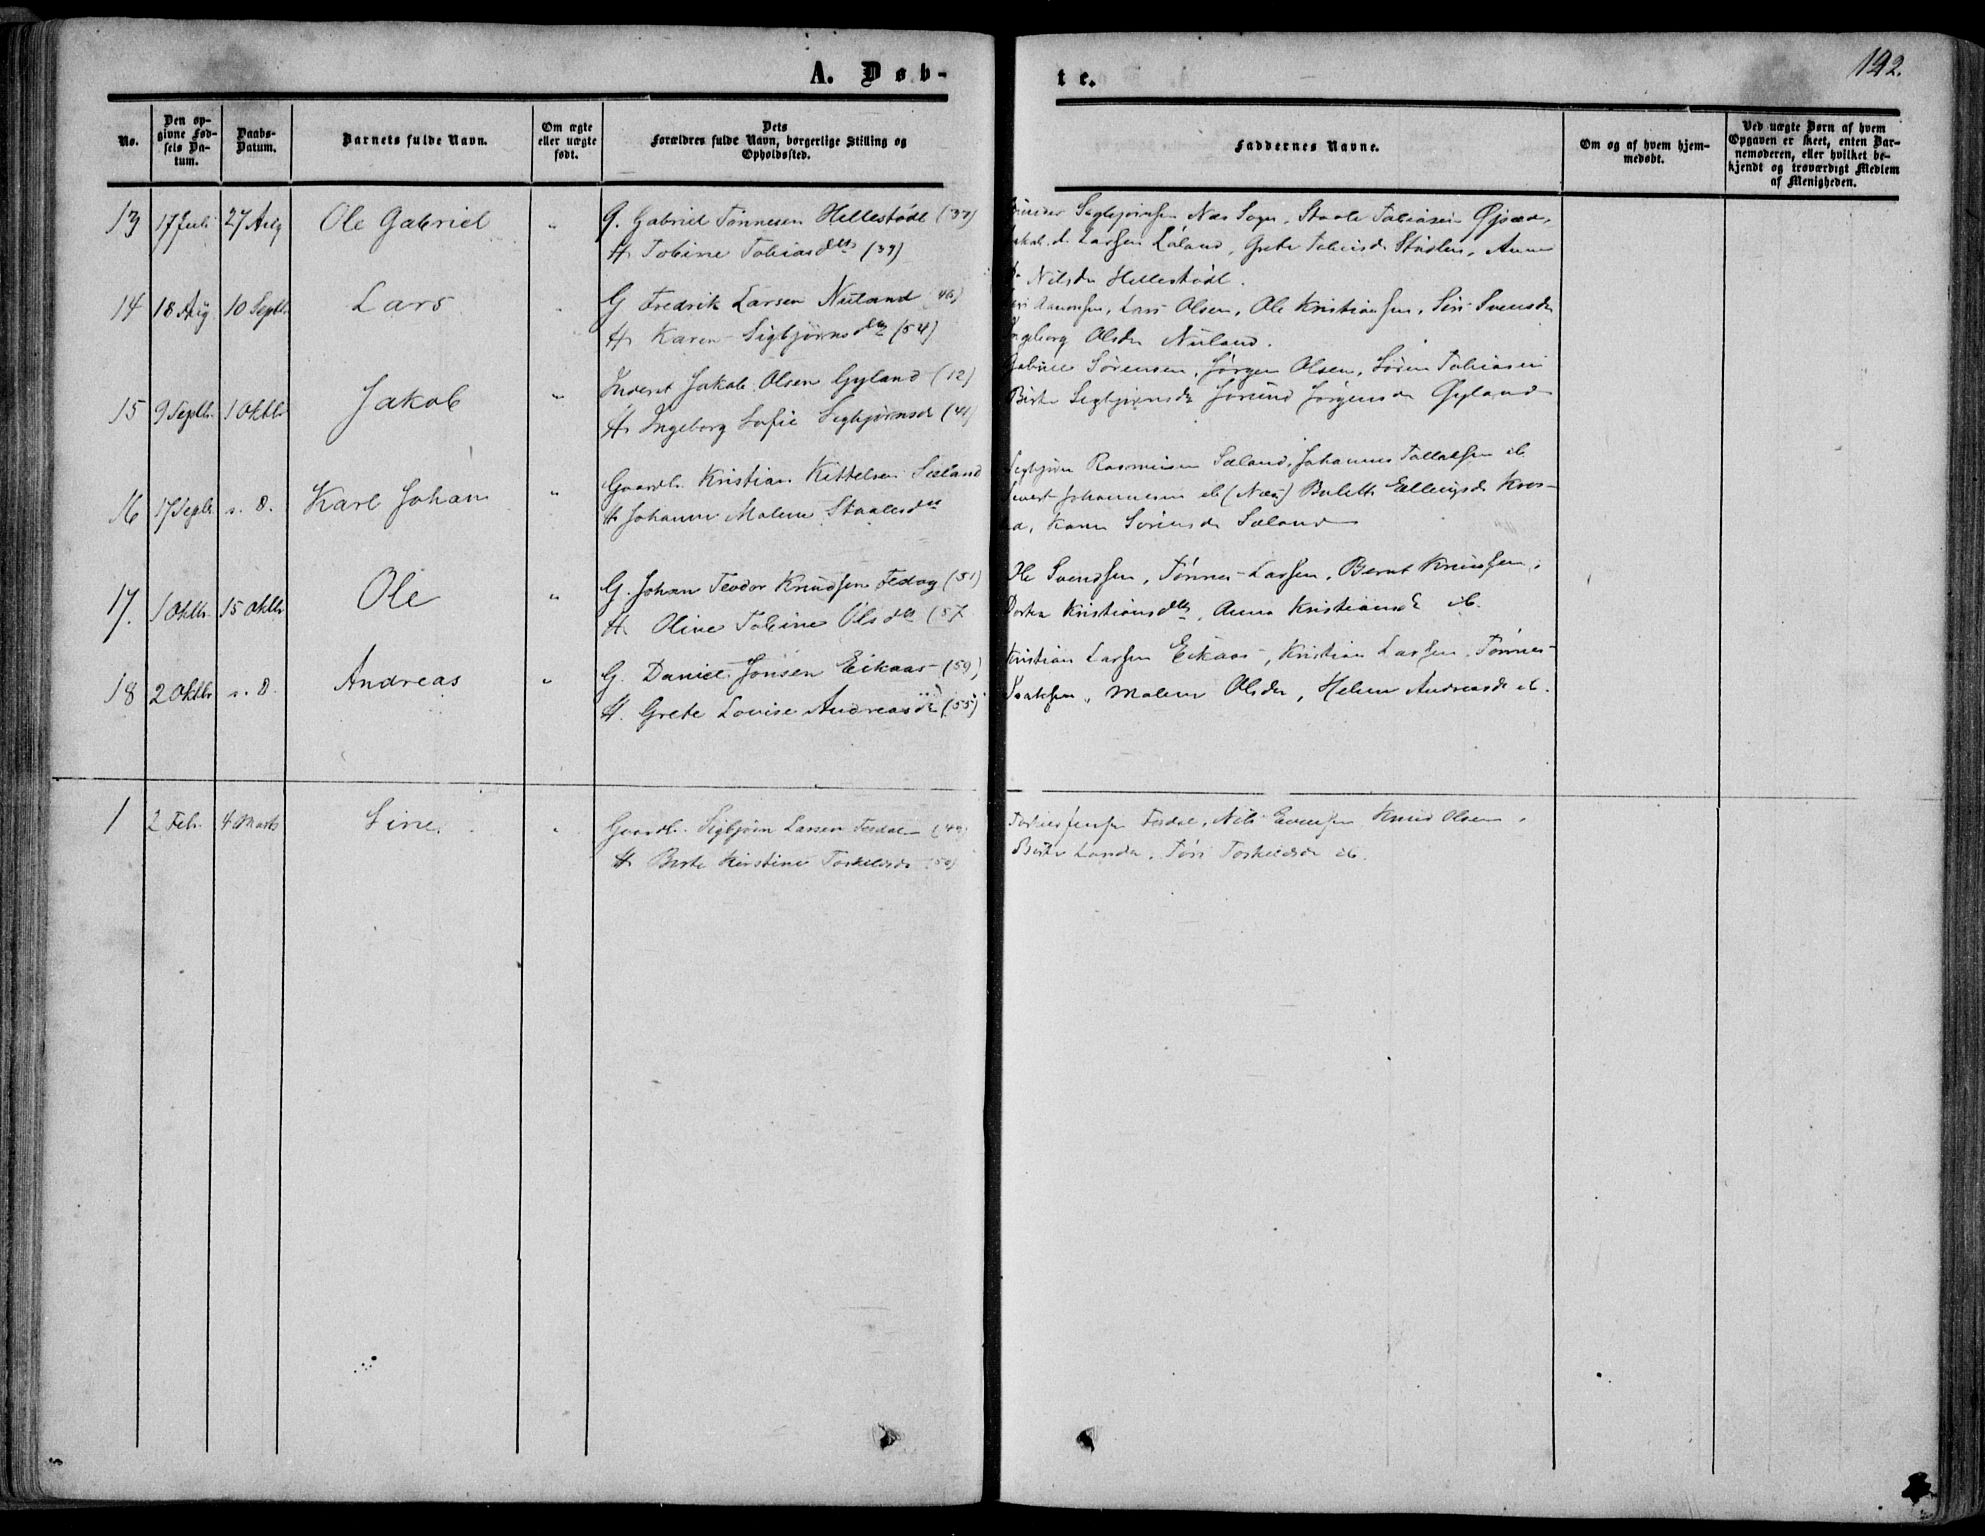 A. Døb-
te.
192.
No.
Den op-
givne Fød-
sels Da-
tum.
Daabs-
Datum.
Barnets fulde Navn.
Om ægte
eller uægte
født.
Dets
Forældres fulde Navn, borgerlige Stilling og
Opholdssted.
Faddernes Navne.
Om og af hvem hjem-
medøbt.
Ved uægte Børn af hvem
Opgaven er skeet, enten Bar-
nemoderen, eller hvilket be-
kjendt og troværdigt Medlem
af Menigheden.
13 17 Juli 27 Aug Ole Gabriel " G. Gabriel Tønnesen Hellestødl (37)
H. Tobine Tobiasdtr (39)
Sigbjørnsen Næs Sogn, Staale Tobiasen
Larsen Løland, Grete Stødlen, Anne
Nilsdr Hellestødl.
14 18 Aug 10 Septbr Lars G Fredrik Larsen Nuland (46)
H. Karen Sigbjørnsdtr (54)
Lars Olsen, Ole Kristiansen, Siri Svensdr
Ingeborg Olsdr Nuland.
15 9 Septbr 1 Oktbr Jakob " Inderst Jakob Olsen Gyland (12)
H. Ingeborg Sofie Sigbjørnsdr (41)
Gabriel Sørensen, Jørgen Olsen, Søren Tobiasen
Birte Sigbjørnsdr Jorund Jørgensdr Gyland
16 17 Septbr s. D. Karl Johan " Gaardb. Kristian Kittelsen Sæland
H. Johanne Malene Staalesdtr
Sigbjørn Rasmussen Sæland, Johannes Tallaksen ib
Sivert Johannesen ib (Næs) Bolette Ellingsdr
Karen Sørensdr Sæland
17. 1 Oktbr. 15 Oktbr Ole " G. Johan Teodor Knudsen Fedog (51)
H. Oline Tobine Olsdtr (57
Ole Svendsen, Tønnes Larsen, Bernt Knudsen,
Dortea Kristiansdtr, Anna Kristiansdr ib.
18 2 Oktbr s. D. Andreas " G. Daniel Jonsen Eikaas (59)
H. Grete Lovise Andreasdtr (55)
Kristian Larsen Eikaas, Kristian Larsen, Tønnes
Isaksen, Malene Olsdr, Helene Andreasdr ib.
1 2 Febr. 4 Marts Sine. " Gaardb. Sigbjørn Larsen Tesdal (49)
H. Birte Kirstine Torkelsdr (50)
Tesdal, Nils Evensen Knud Olsen,
Birte Torkelsdr ib.